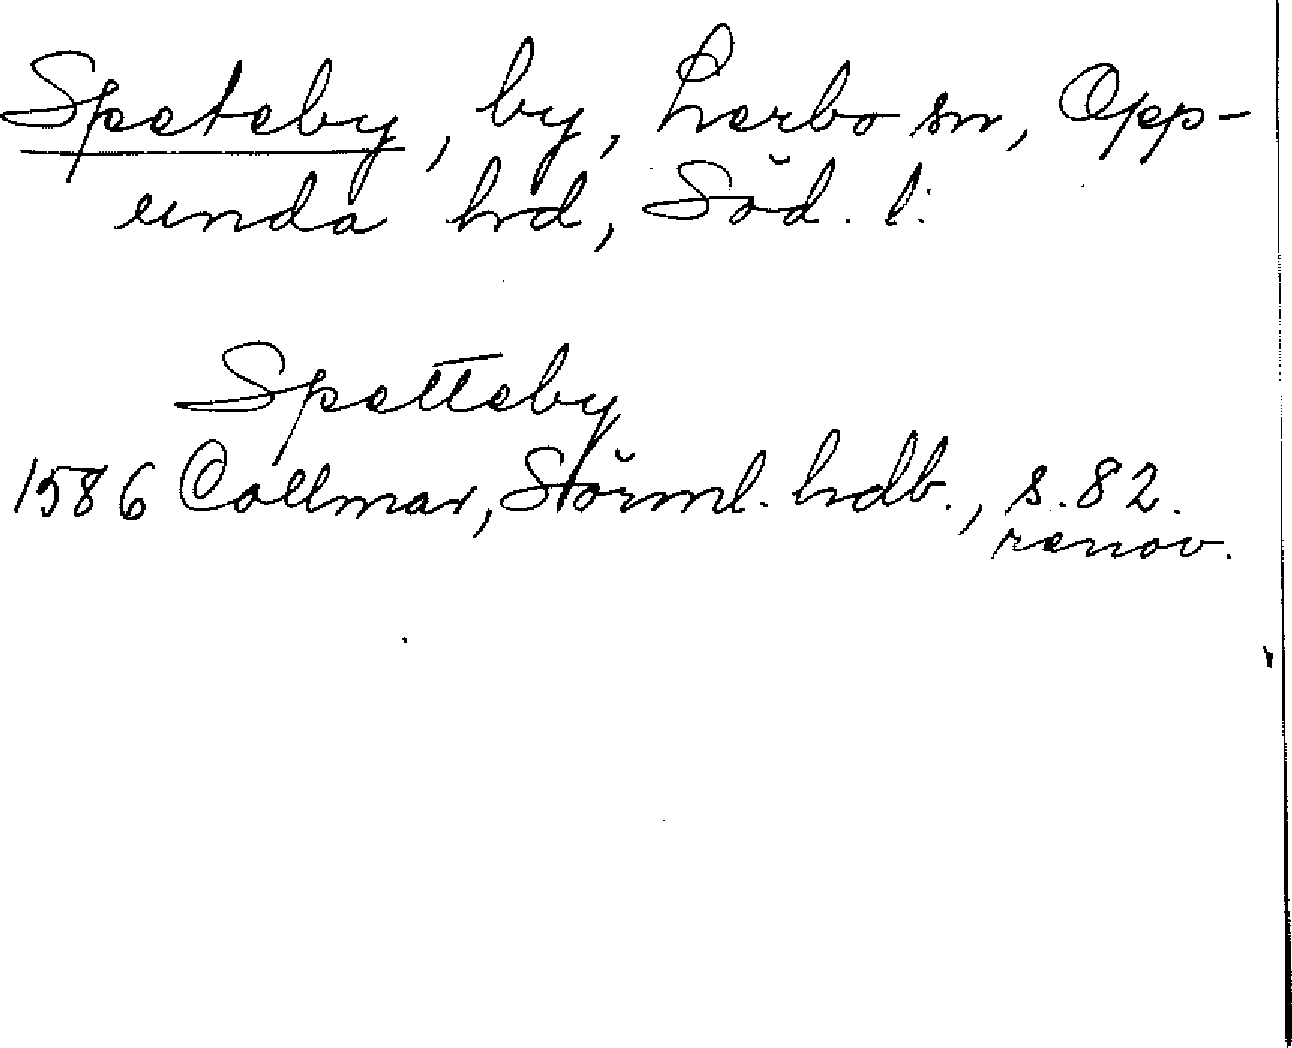 Speteby, by, Lerbo sn, Opp-
unda hd, Söd. l.
Spetteby
1586 Collmar, Strörml. hdb., s. 82.
renov.